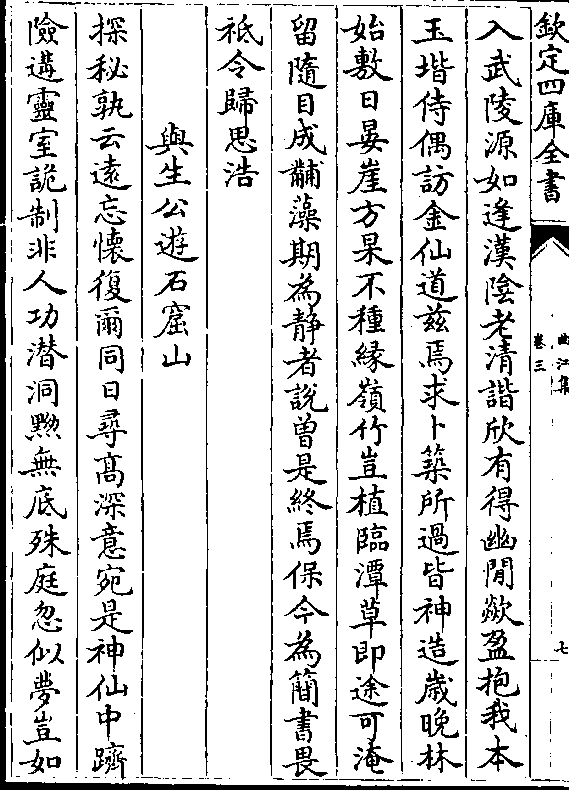 欽定四庫全書
曲江集
卷三
七
入武陵源如逢漢陰老清諧欣有得幽閒欻盈抱我本
玉堦侍偶訪金仙道兹焉求卜築所過皆神造歲晚林
始敷日晏崖方杲不種緣嶺竹豈植臨潭草即途可淹
留隨目成黼藻期為静者說曾是終焉保今為簡書畏
祗令歸思浩
與生公遊石窟山
探秘孰云遠忘懷復爾同日尋髙深意宛是神仙中躋
險遘靈室詭制非人功潜洞黝無底殊庭忽似夢豈如